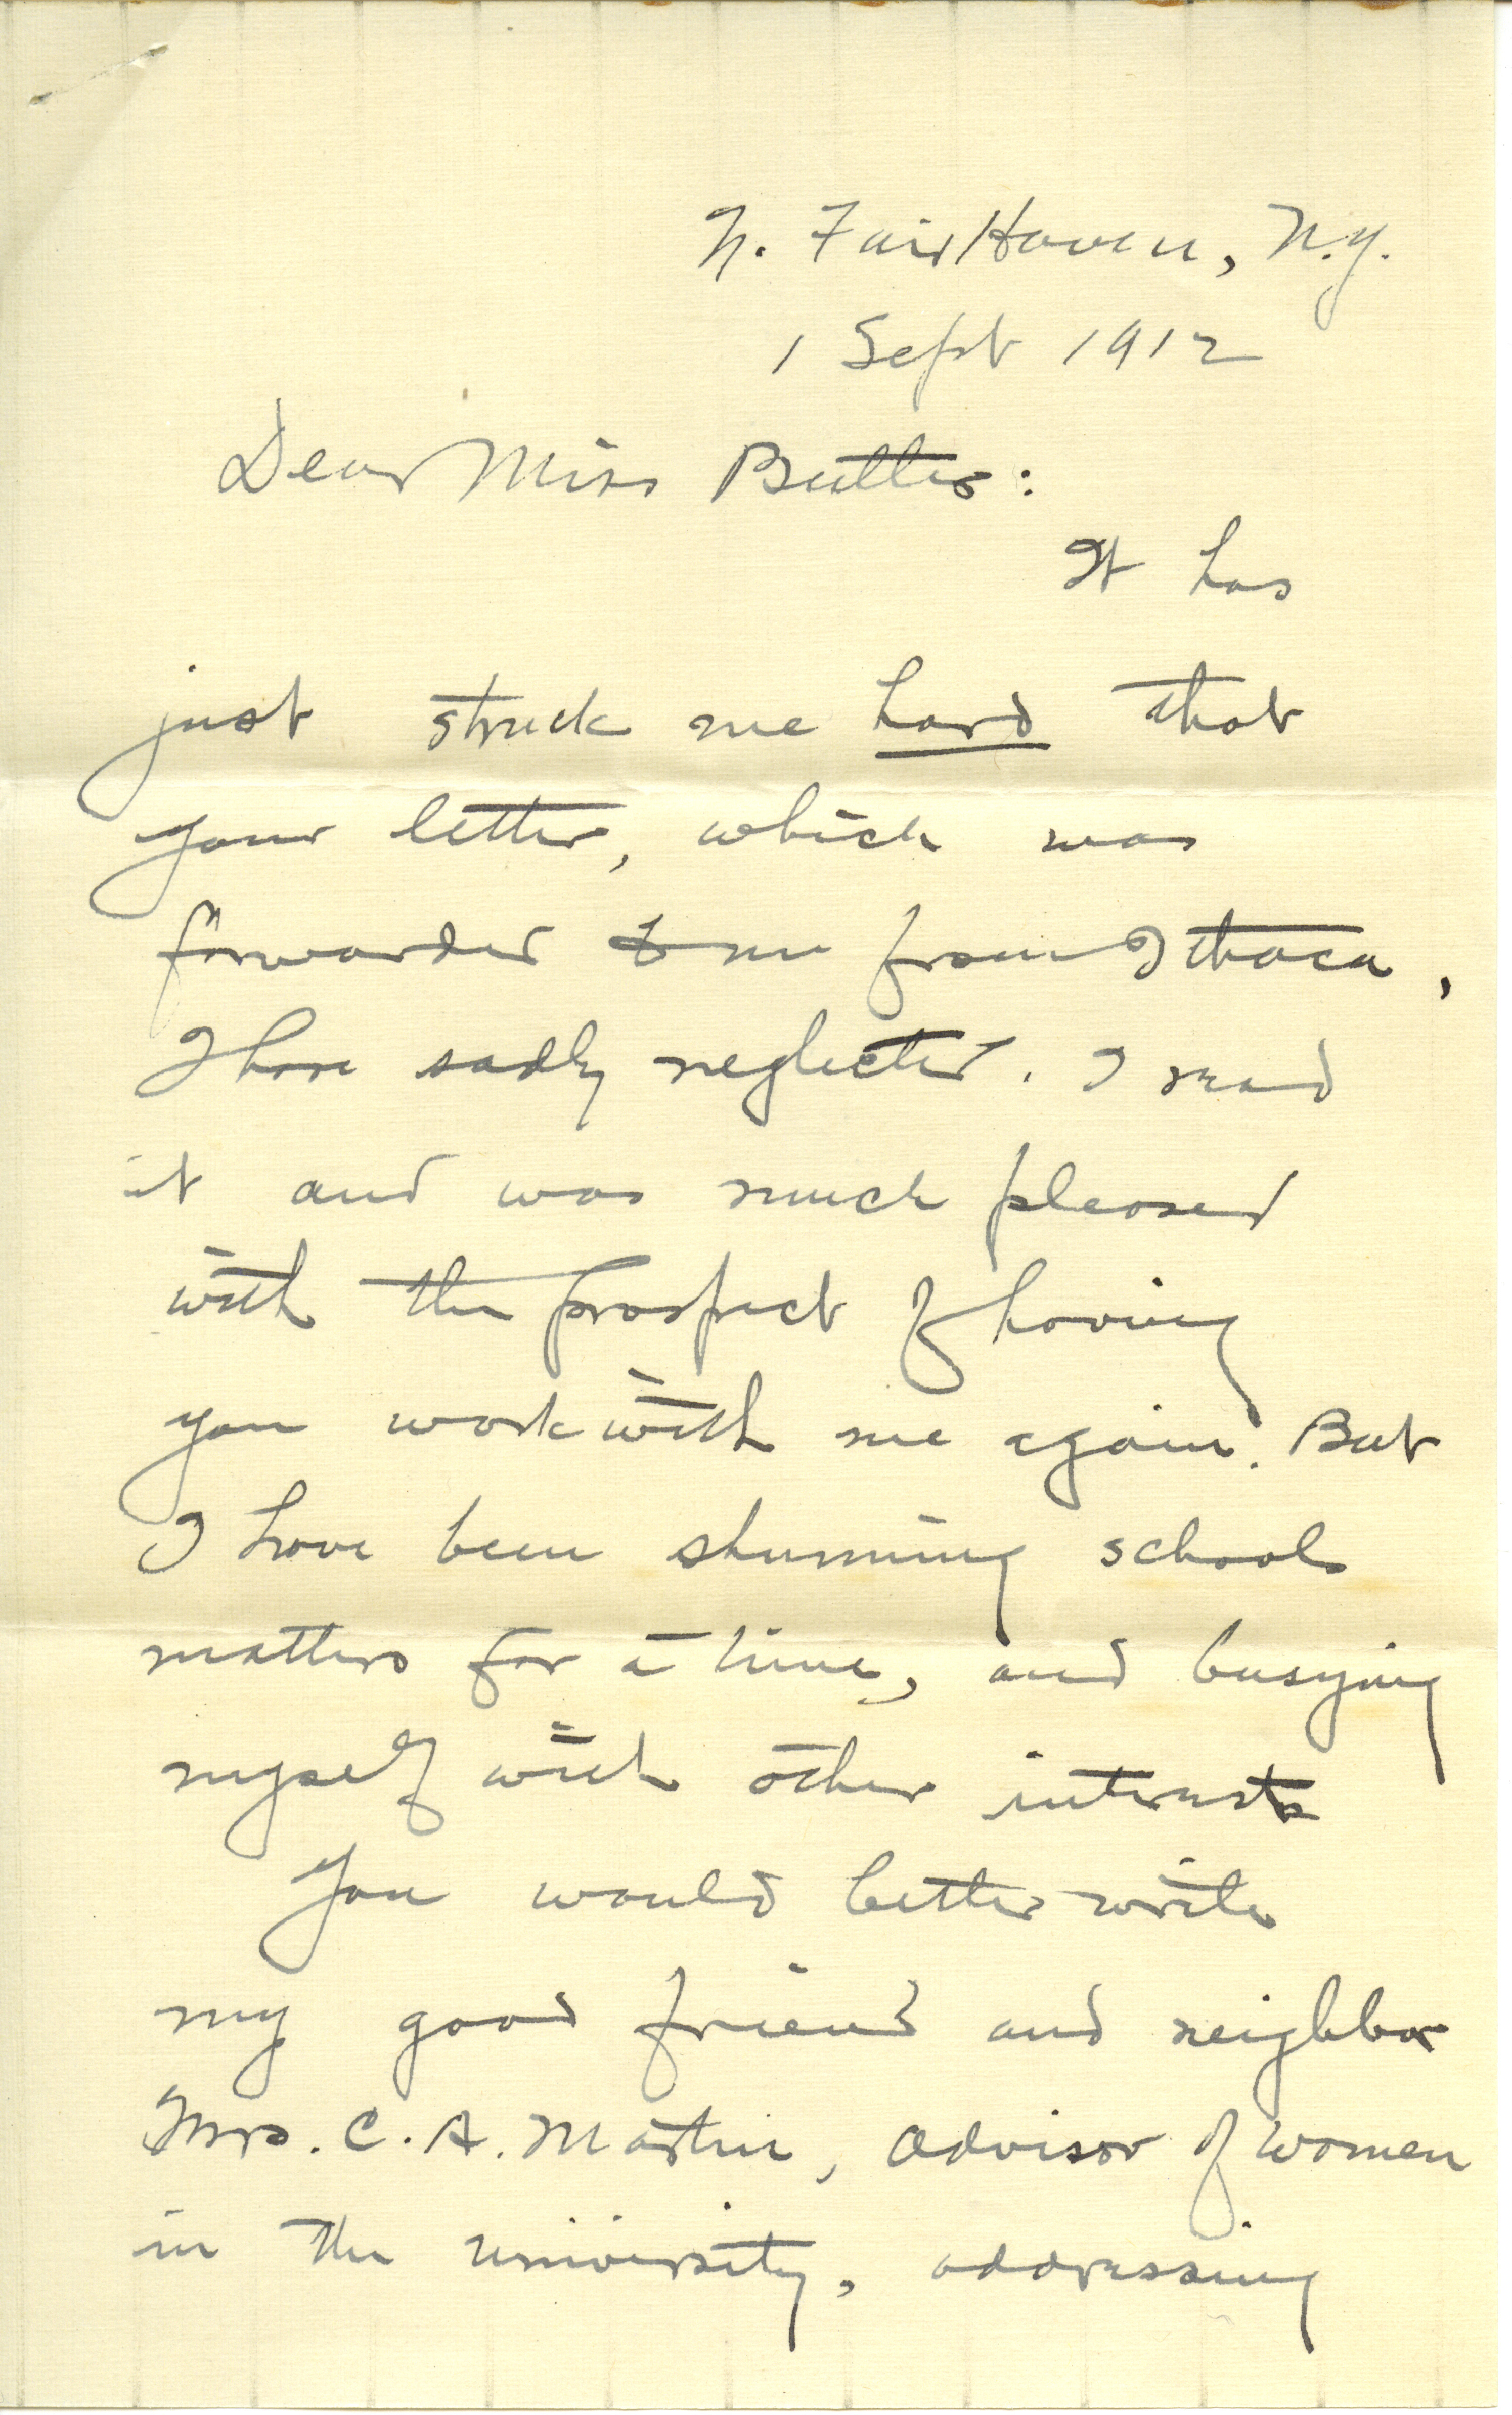 N. Fair Haven, N.Y.
1 Sept 1912
Dear Miss Butler:
It has
just struck me hard that
your letter, which was
forwarded to me from Ithaca,
I have sadly neglected. I read
it and was much pleased
with the prospect of having
you work with me again. But
I have been shunning school
matters for a time, and busying
myself with other interests
You would better write
my good friend and neighbor
Mrs. C. A. Martin, Advisor of Women
in the university, addressing